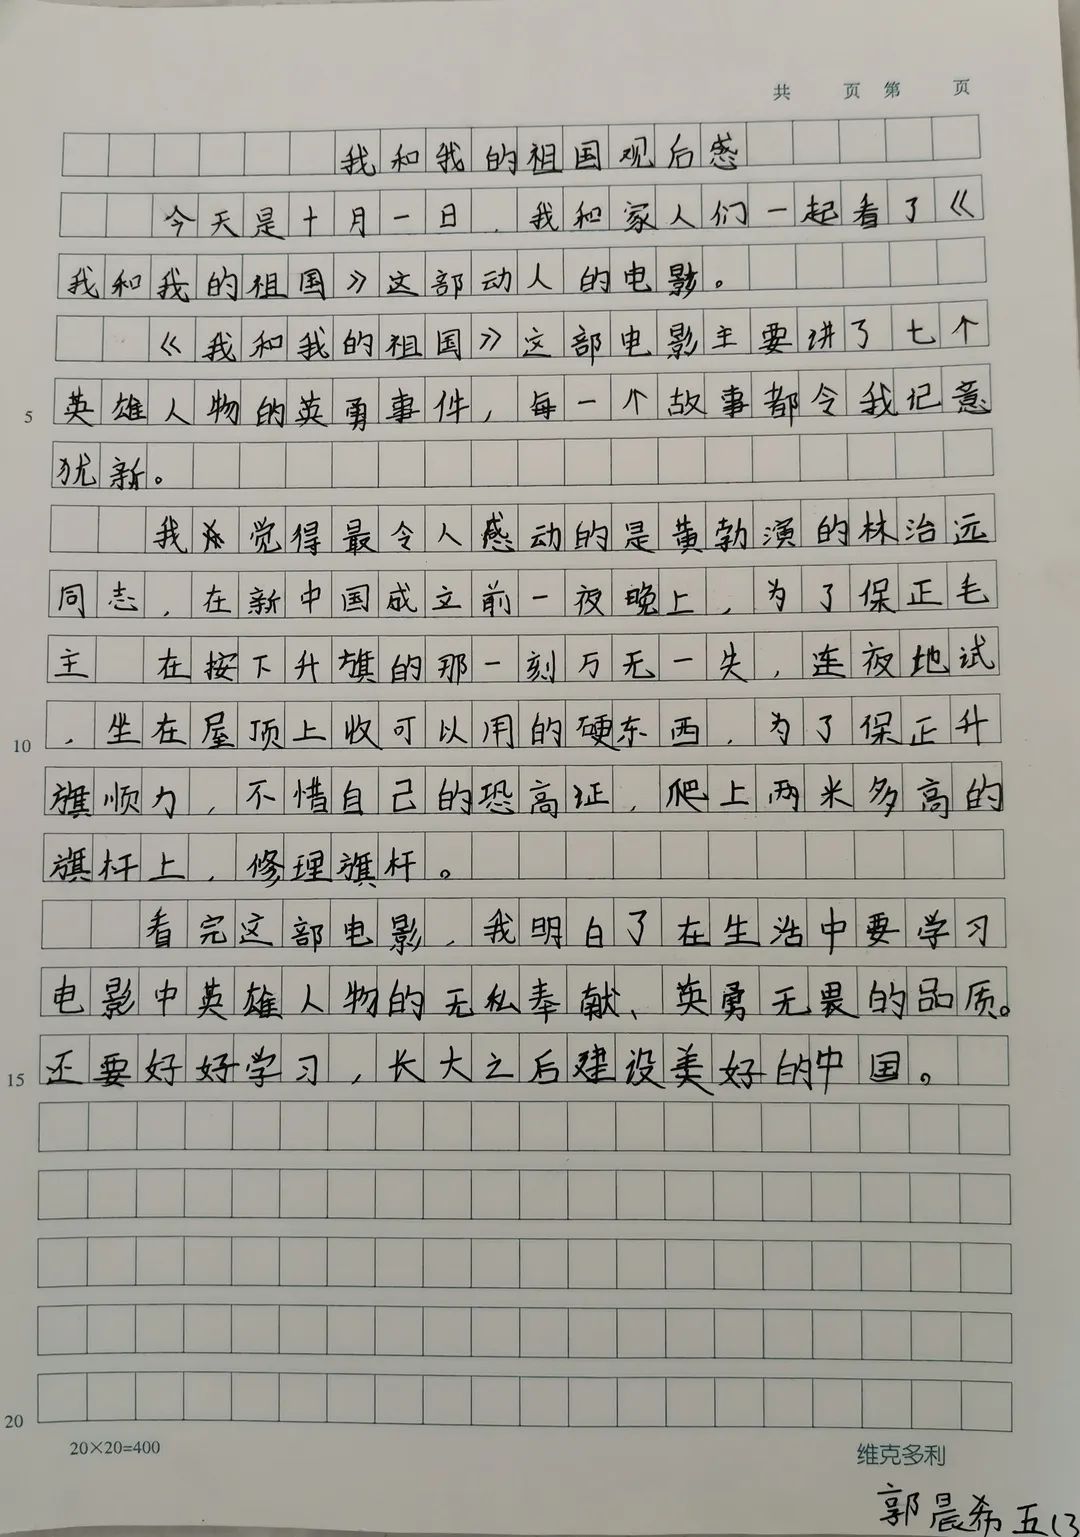 共 页 第 页
我和我的祖国观后感
今天是十月一日，我和家人们一起看了《
我和我的祖国》这部动人的电影。
《我和我的祖国》这部电影主要讲了七个
5 英雄人物的英勇事件，每一个故事都令我记意
犹新。
我觉得最令人感动的是黄勃演的林治远
同志，在新中国成立前一夜晚上，为了保正毛
主 在按下升旗的那一刻万无一失，连夜地试
10 ，坐在屋顶上收可以用的硬东西，为了保正升
旗顺力，不惜自己的恐高证，爬上两米多高的
旗杆上，修理旗杆。
看完这部电影，我明白了在生活中要学习
电影中英雄人物的无私奉献、英勇无畏的品质。
15 还要好好学习，长大之后建设美好的中国。
20
20×20=400 维克多利
郭晨希 五